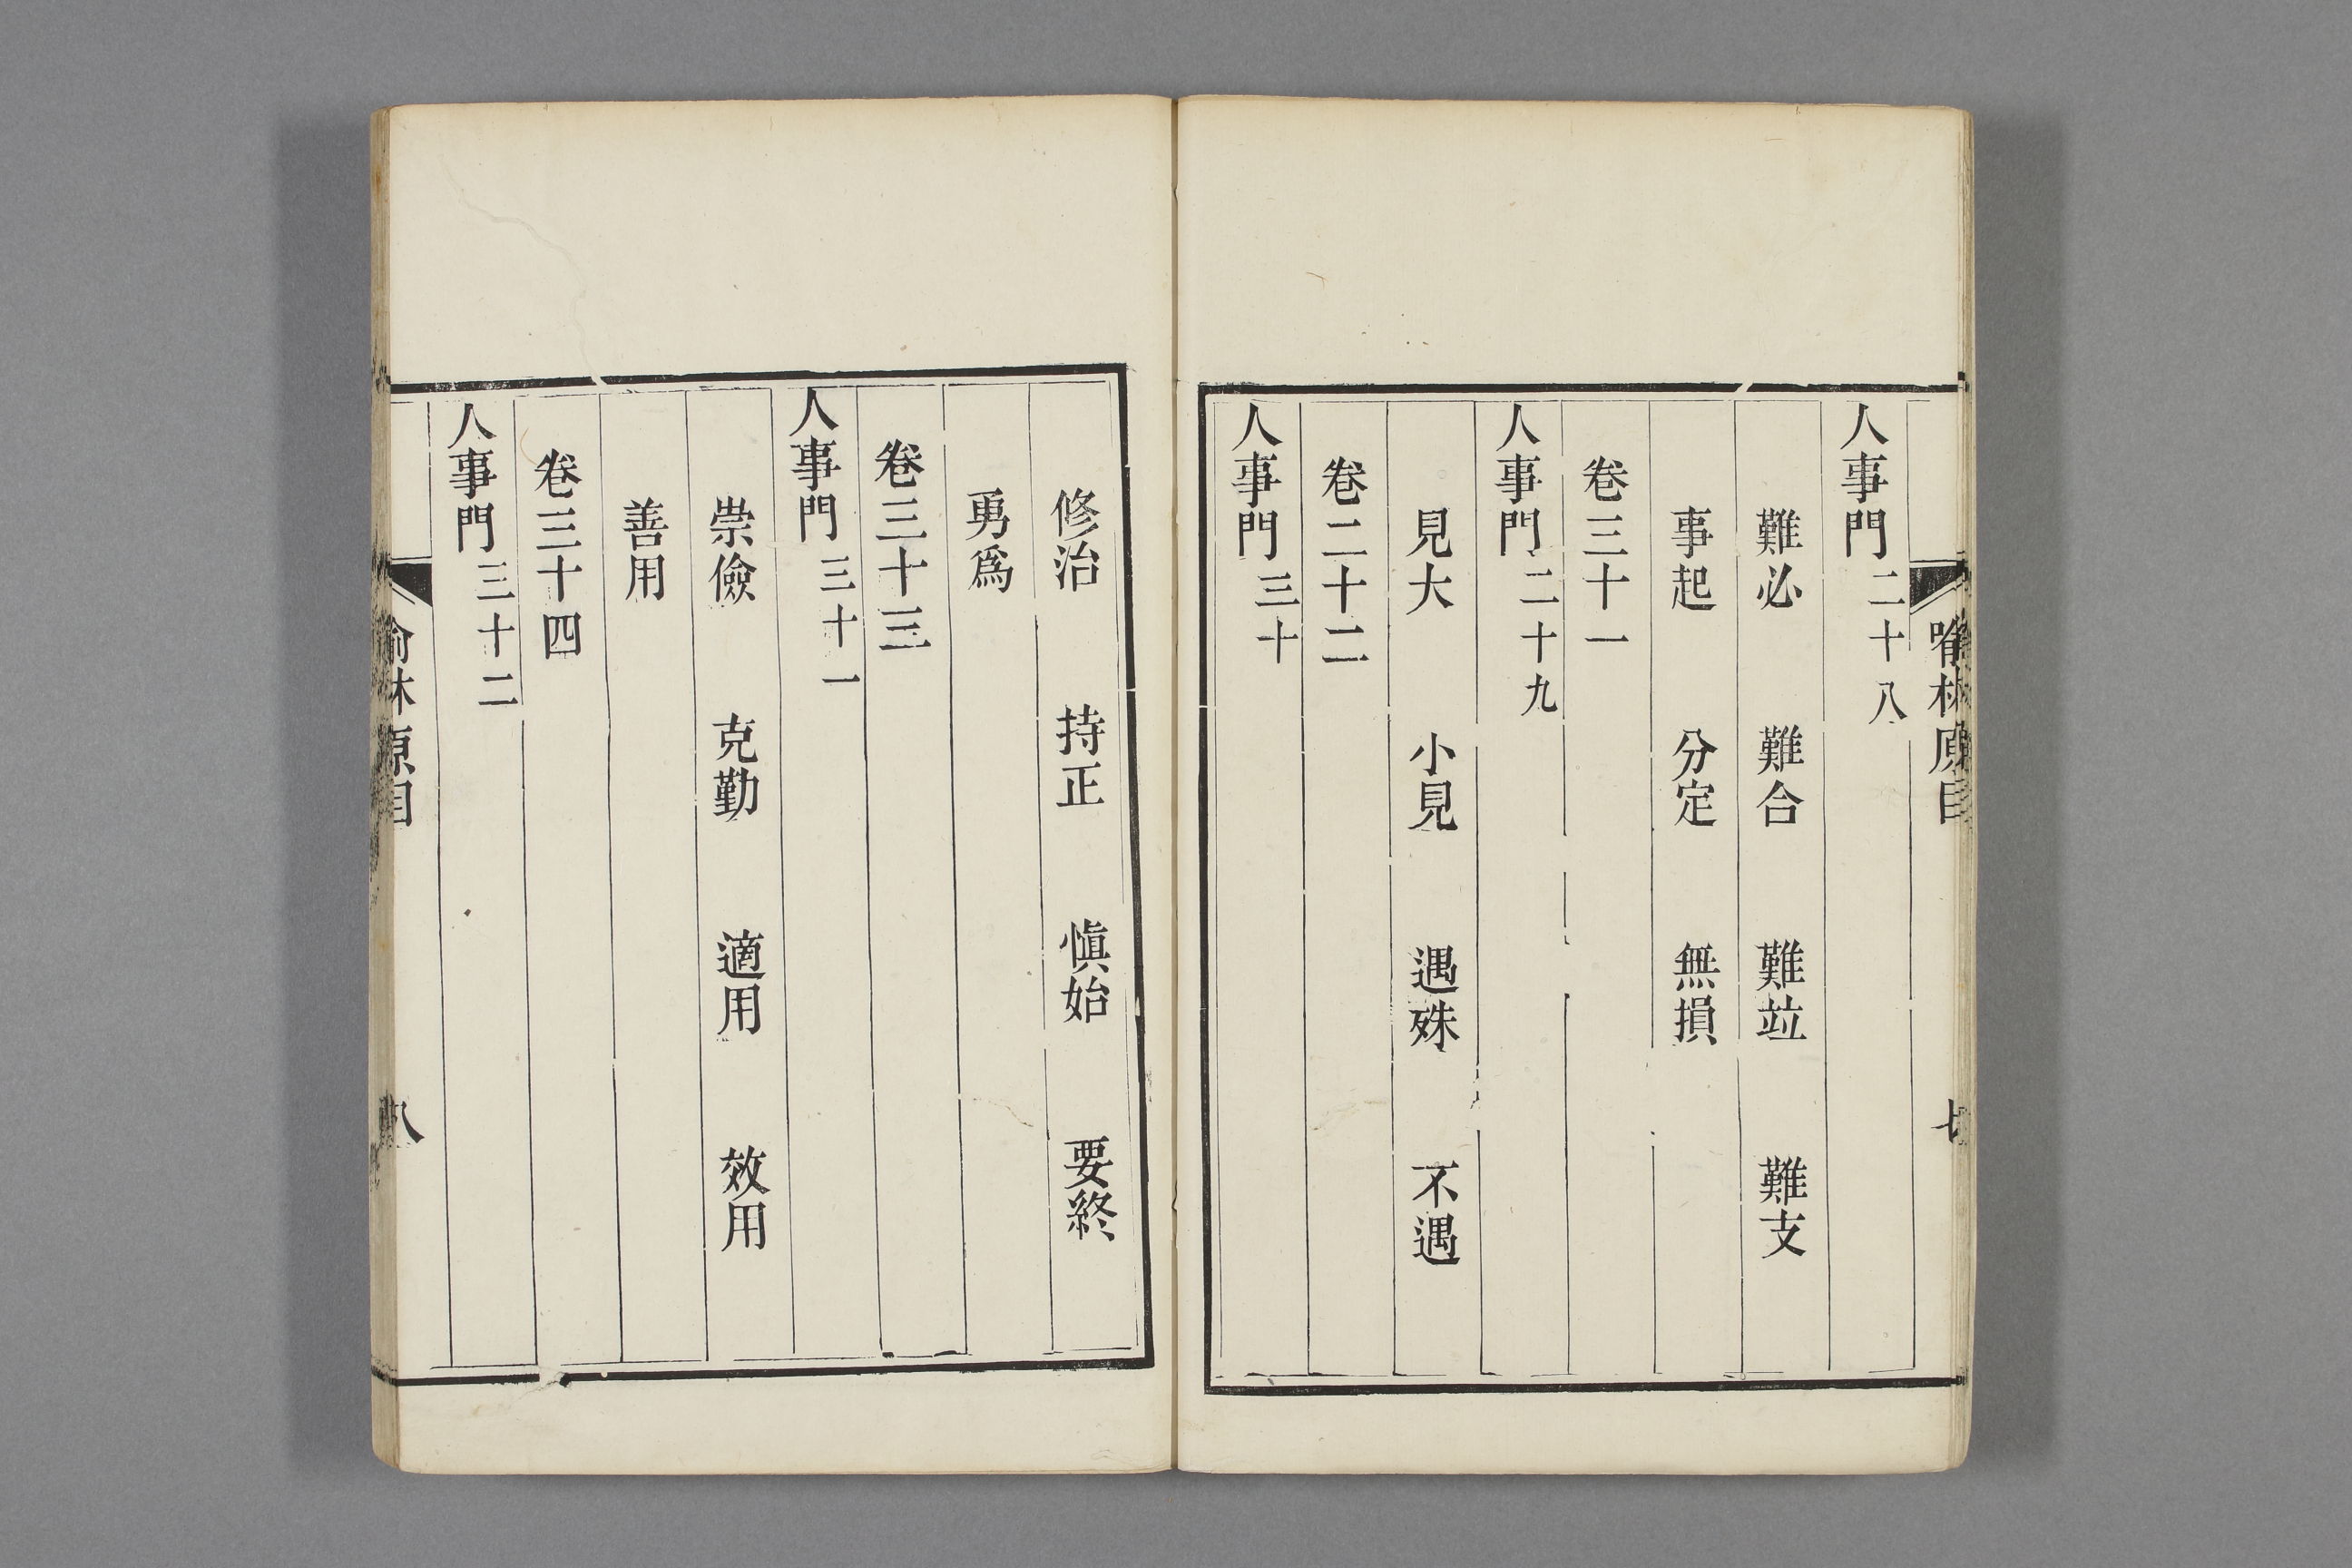 喻林原目
七
人事門二十八
難必 難合 難竝 難支
事起 分定 無損
卷三十一
人事門二十九
見大 小見 遇殊 不遇
卷二十二
人事門三十
修治 持正 愼始 要終
勇爲
卷三十三
人事門三十一
崇儉 克勤 適用 效用
善用
卷三十四
人事門三十二
喻林原目
八